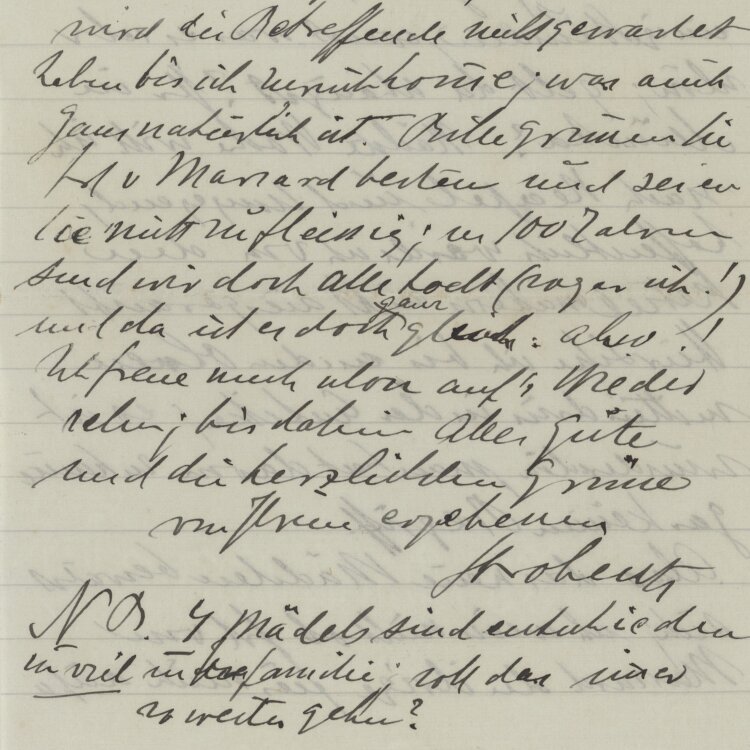 wird die Betreffende nicht gewartet
haben bis ich zurückkome; was auch
ganz natürlich ist. Bitte grüssen Sie
Frl v Massard bestens und seien
Sie nicht zu fleissig; in 100 Jahren
sind wir doch alle todt (sage ich!)
und da ist es doch ganz gleich: also!
Ich freue mich schon auf's Wieder
sehen; bis dahin Alles Gute
und die herzlichsten Grüsse
von Ihrem ergebenen
N B. 4 Mädels sind entschieden
zu viel in der familie; soll das imer
so weiter gehen?